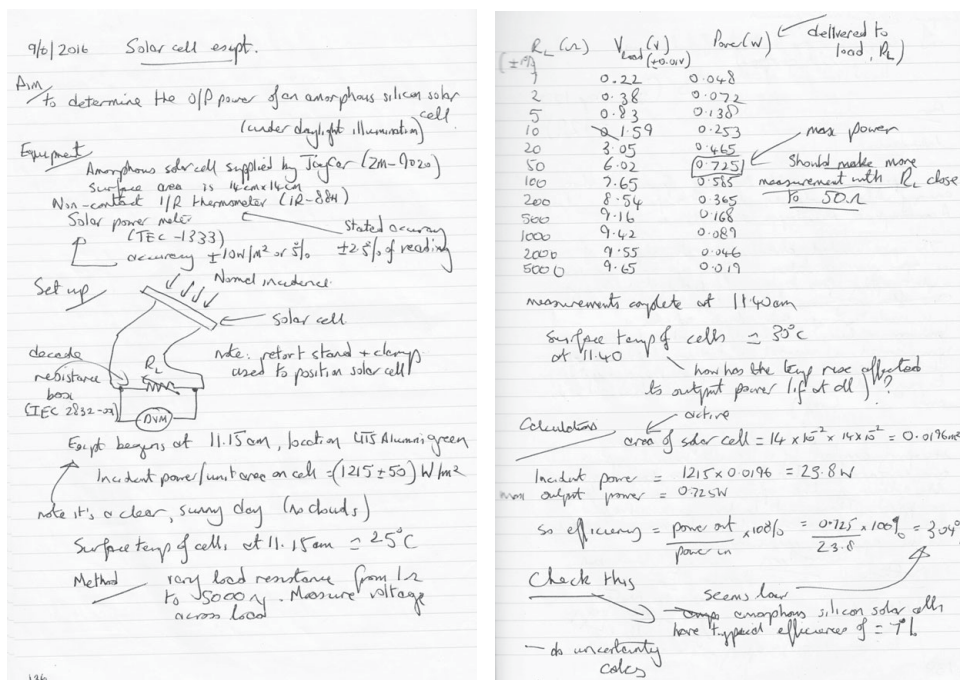 9/6/2016 Solar cell expt.
Aim
to determine the O/P power of an amorphous silicon solar
cell
(under daylight illumination)
Equipment
Amorphous solar cell supplied by Jaycar (ZM-9020)
surface area is 14cm x 14cm
Non-contact I/R thermometer (IR-884)
Solar power meter
(TEC-1333)
accuracy ±10W/m² or 5%
Stated accuracy
±2.5% of reading
Set up
Normal incidence
solar cell
note: retort stand + clamps
used to position solar cell
decade
resistance
box
(IEC 2832-
R_L
DVM
Expt begins at 11.15am, location UTS Alumni green
Incident power/unit area on cell = (1215 ± 50) W/m²
note it's a clear, sunny day (no clouds)
Surface temp of cells at 11.15am ≃ 25°C
Method vary load resistance from 1Ω
to 5000Ω. Measure voltage
across load
136
R_L (Ω) V_load (V) Power (W) delivered to
load, R_L)
(±1%) (±0.01V)
1 0.22 0.048
2 0.38 0.072
5 0.83 0.138
10 1.59 0.253
20 3.05 0.465
50 6.02 0.725
100 7.65 0.585
200 8.54 0.365
500 9.16 0.168
1000 9.42 0.089
2000 9.55 0.046
5000 9.65 0.019
max power
Should make more
measurement with R_L close
to 50Ω
measurements complete at 11.40am
surface temp of cells ≃ 30°C
at 11.40
how has the temp rise affected
to output power (if at all)?
Calculations
active
area of solar cell = 14 x 10⁻² x 14 x 10⁻² = 0.0196m²
Incident power = 1215 x 0.0196 = 23.8W
max output power = 0.725W
so efficiency = power out / power in x 100% = 0.725 / 23.8 x 100% = 3.04%
Check this
seems low
amorphous silicon solar cells
have typical efficiencies of ≃ 7%
- do uncertainty
calcs